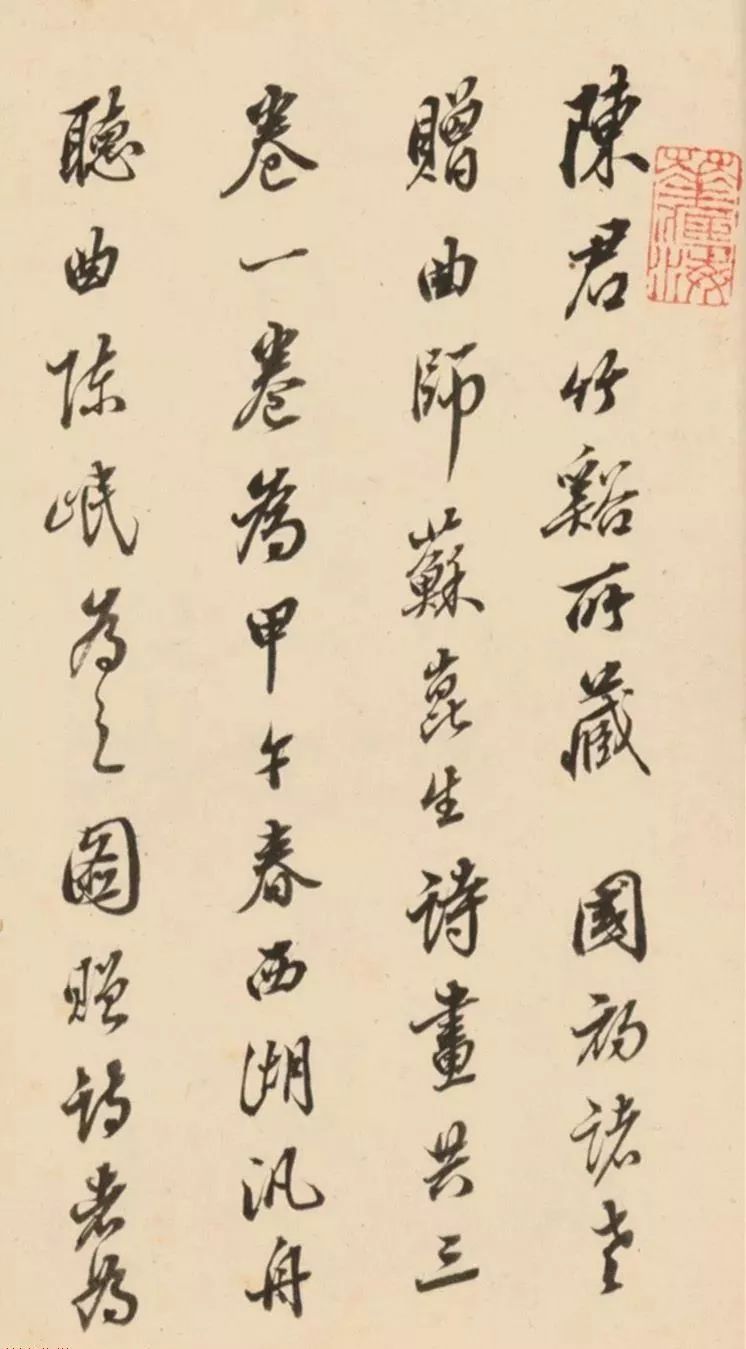 陳君竹谿所藏 國初諸老
贈曲師蘇崑生詩畫共三
卷一卷為甲午春西湖汎舟
聽曲陳岷為之圖贈詩者為